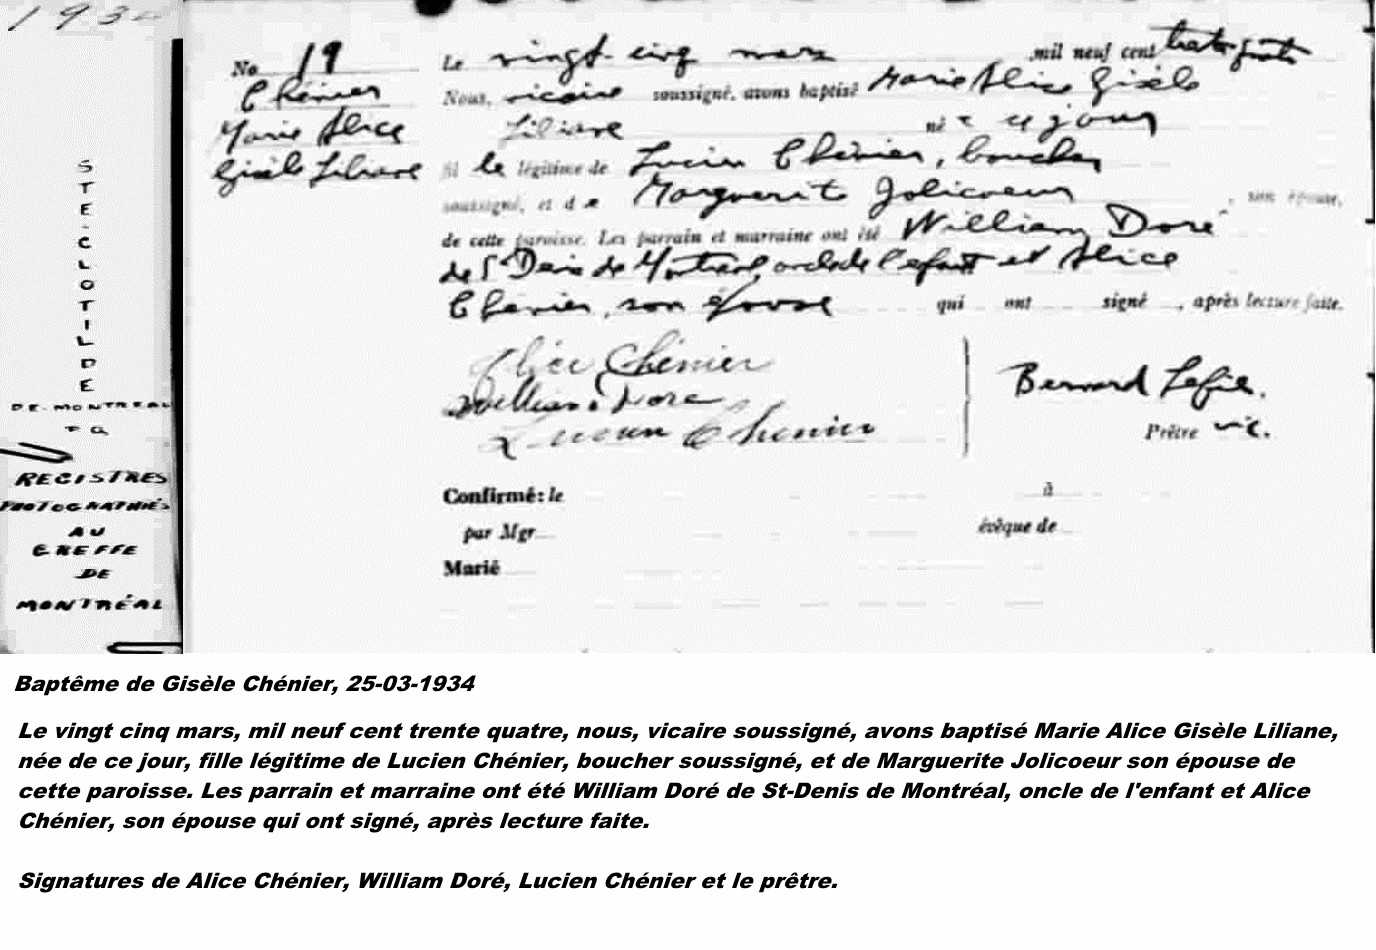 1934
STE-CLOTILDE
DE-MONTREAL
P Q
REGISTRES
PHOTOGRAPHIÉS
AU
GREFFE
DE
MONTRÉAL
No 19
Chénier
Marie Alice
Gisèle Liliane
Le vingt-cinq mars mil neuf cent trente-quatre
Nous, vicaire soussigné, avons baptisé Marie Alice Gisèle
Liliane né e ce jour
fi lle légitime de Lucien Chénier, boucher
soussigné, et d e Marguerite Jolicoeur, son épouse,
de cette paroisse. Les parrain et marraine ont été William Doré
de St Denis de Montréal, oncle de l'enfant et Alice
Chénier, son épouse qui ont signé, après lecture faite.
Alice Chénier
William Dore
Lucien Chenier
Bernard
Prêtre vic.
Confirmé: le à
par Mgr évêque de
Marié
Baptême de Gisèle Chénier, 25-03-1934
Le vingt cinq mars, mil neuf cent trente quatre, nous, vicaire soussigné, avons baptisé Marie Alice Gisèle Liliane,
née de ce jour, fille légitime de Lucien Chénier, boucher soussigné, et de Marguerite Jolicoeur son épouse de
cette paroisse. Les parrain et marraine ont été William Doré de St-Denis de Montréal, oncle de l'enfant et Alice
Chénier, son épouse qui ont signé, après lecture faite.
Signatures de Alice Chénier, William Doré, Lucien Chénier et le prêtre.